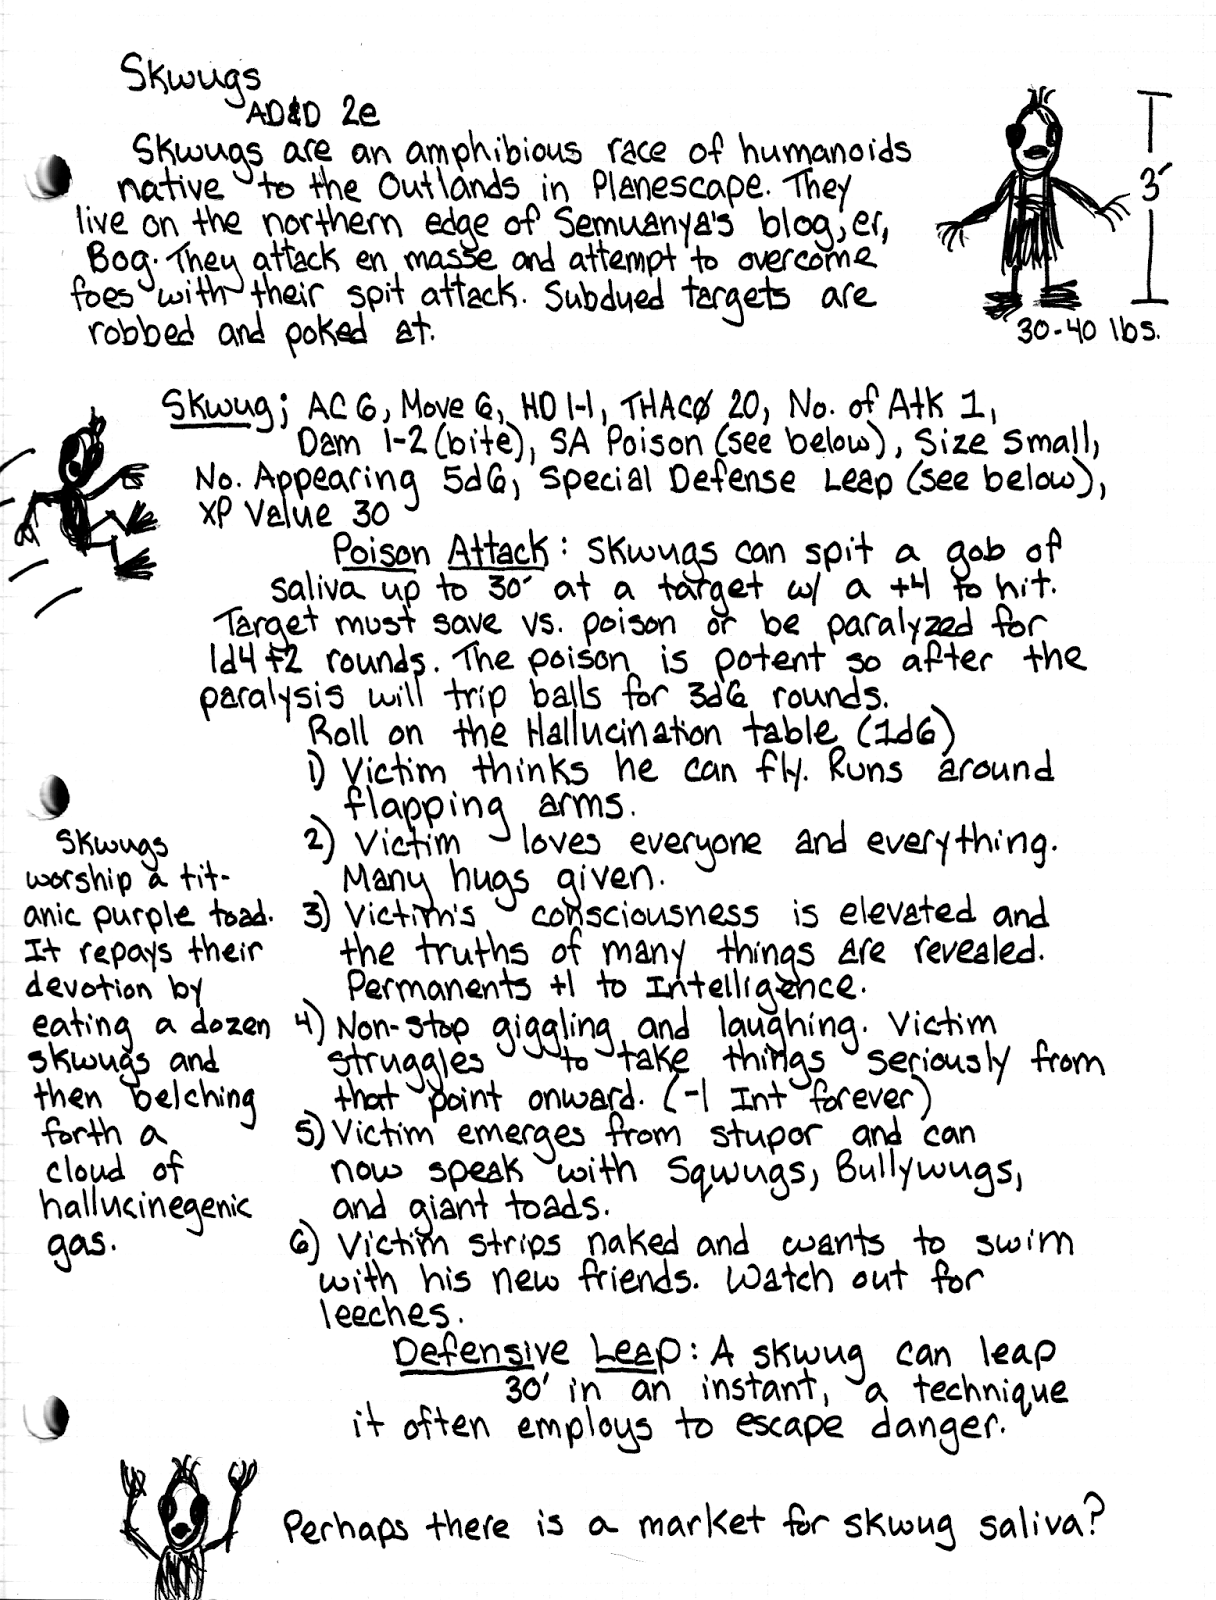 Skwugs
AD&D 2e
Skwugs are an amphibious race of humanoids
native to the Outlands in Planescape. They
live on the northern edge of Semuanya's blog, er,
Bog. They attack en masse and attempt to overcome
foes with their spit attack. Subdued targets are
robbed and poked at.
3'
30-40 lbs.
Skwug; AC 6, Move 6, HD 1-1, THAC0 20, No. of Atk 1,
Dam 1-2 (bite), SA Poison (see below), Size Small,
No. Appearing 5d6, Special Defense Leap (see below),
XP Value 30
Poison Attack: Skwugs can spit a gob of
saliva up to 30' at a target w/ a +4 to hit.
Target must save vs. poison or be paralyzed for
1d4+2 rounds. The poison is potent so after the
paralysis will trip balls for 3d6 rounds.
Roll on the Hallucination table (1d6)
1) Victim thinks he can fly. Runs around
flapping arms.
2) Victim loves everyone and everything.
Many hugs given.
3) Victim's consciousness is elevated and
the truths of many things are revealed.
Permanents +1 to Intelligence.
4) Non-stop giggling and laughing. Victim
struggles to take things seriously from
that point onward. (-1 Int forever)
5) Victim emerges from stupor and can
now speak with Sqwugs, Bullywugs,
and giant toads.
6) Victim strips naked and wants to swim
with his new friends. Watch out for
leeches.
Defensive Leap: A skwug can leap
30' in an instant, a technique
it often employs to escape danger.
Skwugs
worship a tit-
anic purple toad.
It repays their
devotion by
eating a dozen
skwugs and
then belching
forth a
cloud of
hallucinegenic
gas.
Perhaps there is a market for skwug saliva?